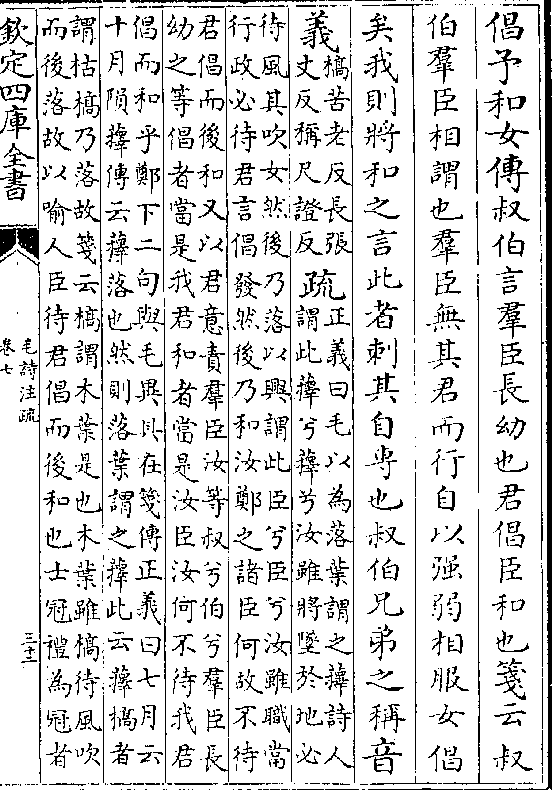 倡予和女傳叔伯言羣臣長幼也君倡臣和也箋云叔
伯羣臣相謂也羣臣無其君而行自以强弱相服女倡
矣我則將和之言此者刺其自専也叔伯兄弟之稱音
義槁苦老反長張
丈反稱尺證反疏正義曰毛以為落葉謂之蘀詩人
謂此蘀兮蘀兮汝雖將墜於地必
待風其吹女然後乃落以興謂此臣兮臣兮汝雖職當
行政必待君言倡發然後乃和汝鄭之諸臣何故不待
君倡而後和又以君意責羣臣汝等叔兮伯兮羣臣長
幼之等倡者當是我君和者當是汝臣汝何不待我君
倡而和乎鄭下二句與毛異具在箋傳正義曰七月云
十月隕蘀傳云蘀落也然則落葉謂之蘀此云蘀槁者
謂枯槁乃落故箋云槁謂木葉是也木葉雖槁待風吹
而後落故以喻人臣待君倡而後和也士冠禮為冠者
欽定四庫全書
毛詩注疏
卷七
三十二